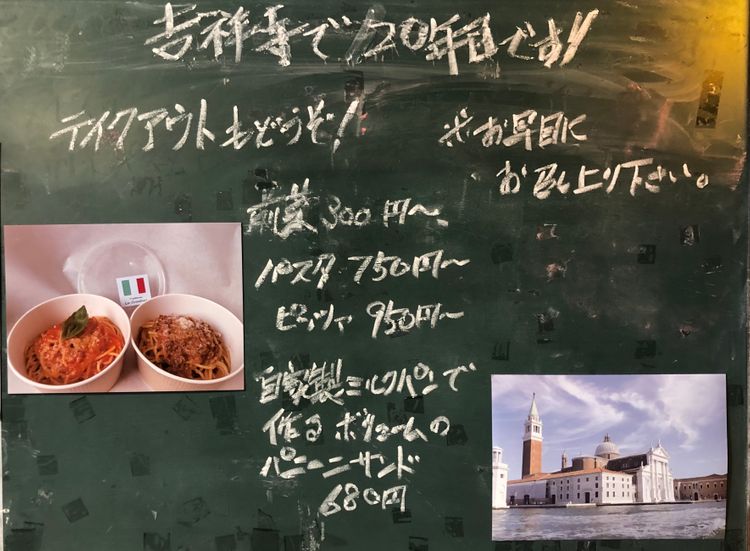 吉祥寺で20年目です!!
テイクアウトもどうぞ!
※お早目に
お召し上り下さい。
前菜 300円〜
パスタ 750円〜
ピッツァ 950円〜
自家製ミルクパンで
作るボリュームの
パニーニサンド
680円